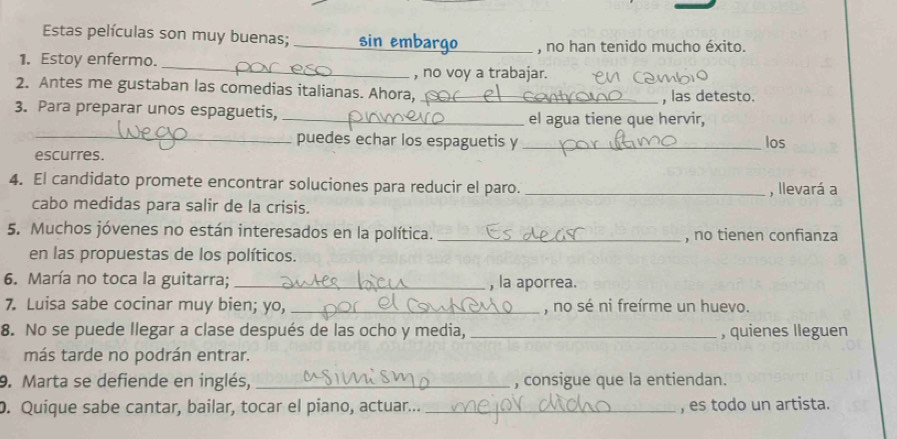 Estas películas son muy buenas; sin embargo, no han tenido mucho éxito.
1. Estoy enfermo. por eso, no voy a trabajar. en cambio
2. Antes me gustaban las comedias italianas. Ahora, por el contrario, las detesto.
3. Para preparar unos espaguetis, primero el agua tiene que hervir,
luego puedes echar los espaguetis y por último los
escurres.
4. El candidato promete encontrar soluciones para reducir el paro. , llevará a
cabo medidas para salir de la crisis.
5. Muchos jóvenes no están interesados en la política. Es decir, no tienen confianza
en las propuestas de los políticos.
6. María no toca la guitarra; antes bien, la aporrea.
7. Luisa sabe cocinar muy bien; yo, por el contrario, no sé ni freírme un huevo.
8. No se puede llegar a clase después de las ocho y media, , quienes lleguen
más tarde no podrán entrar.
9. Marta se defiende en inglés, asimismo, consigue que la entiendan.
0. Quique sabe cantar, bailar, tocar el piano, actuar... mejor dicho, es todo un artista.